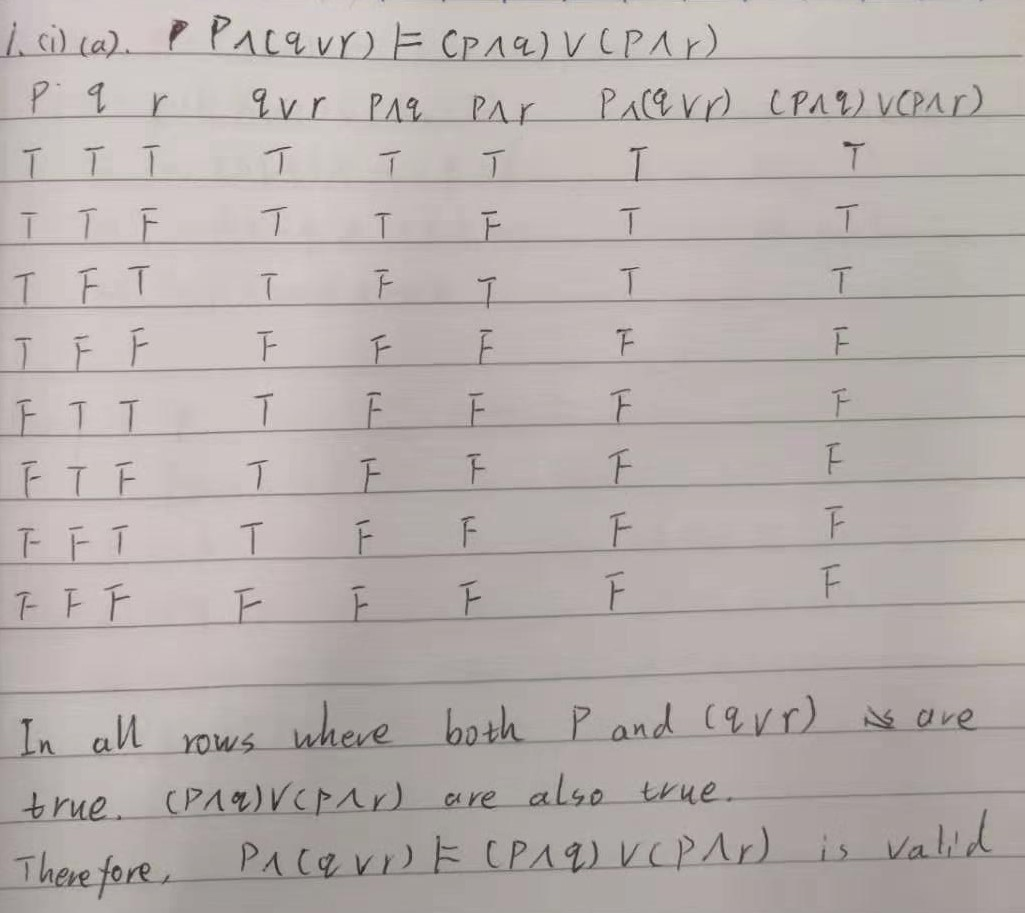 1. (i) (a). P∧(q∨r) ⊨ (p∧q)∨(p∧r)
P q r q∨r P∧q P∧r P∧(q∨r) (P∧q)∨(P∧r)
T T T T T T T T
T T F T T F T T
T F T T F T T T
T F F F F F F F
F T T T F F F F
F T F T F F F F
F F T T F F F F
F F F F F F F F
In all rows where both P and (q∨r) are
true. (P∧q)∨(P∧r) are also true.
Therefore, P∧(q∨r) ⊨ (P∧q)∨(P∧r) is valid